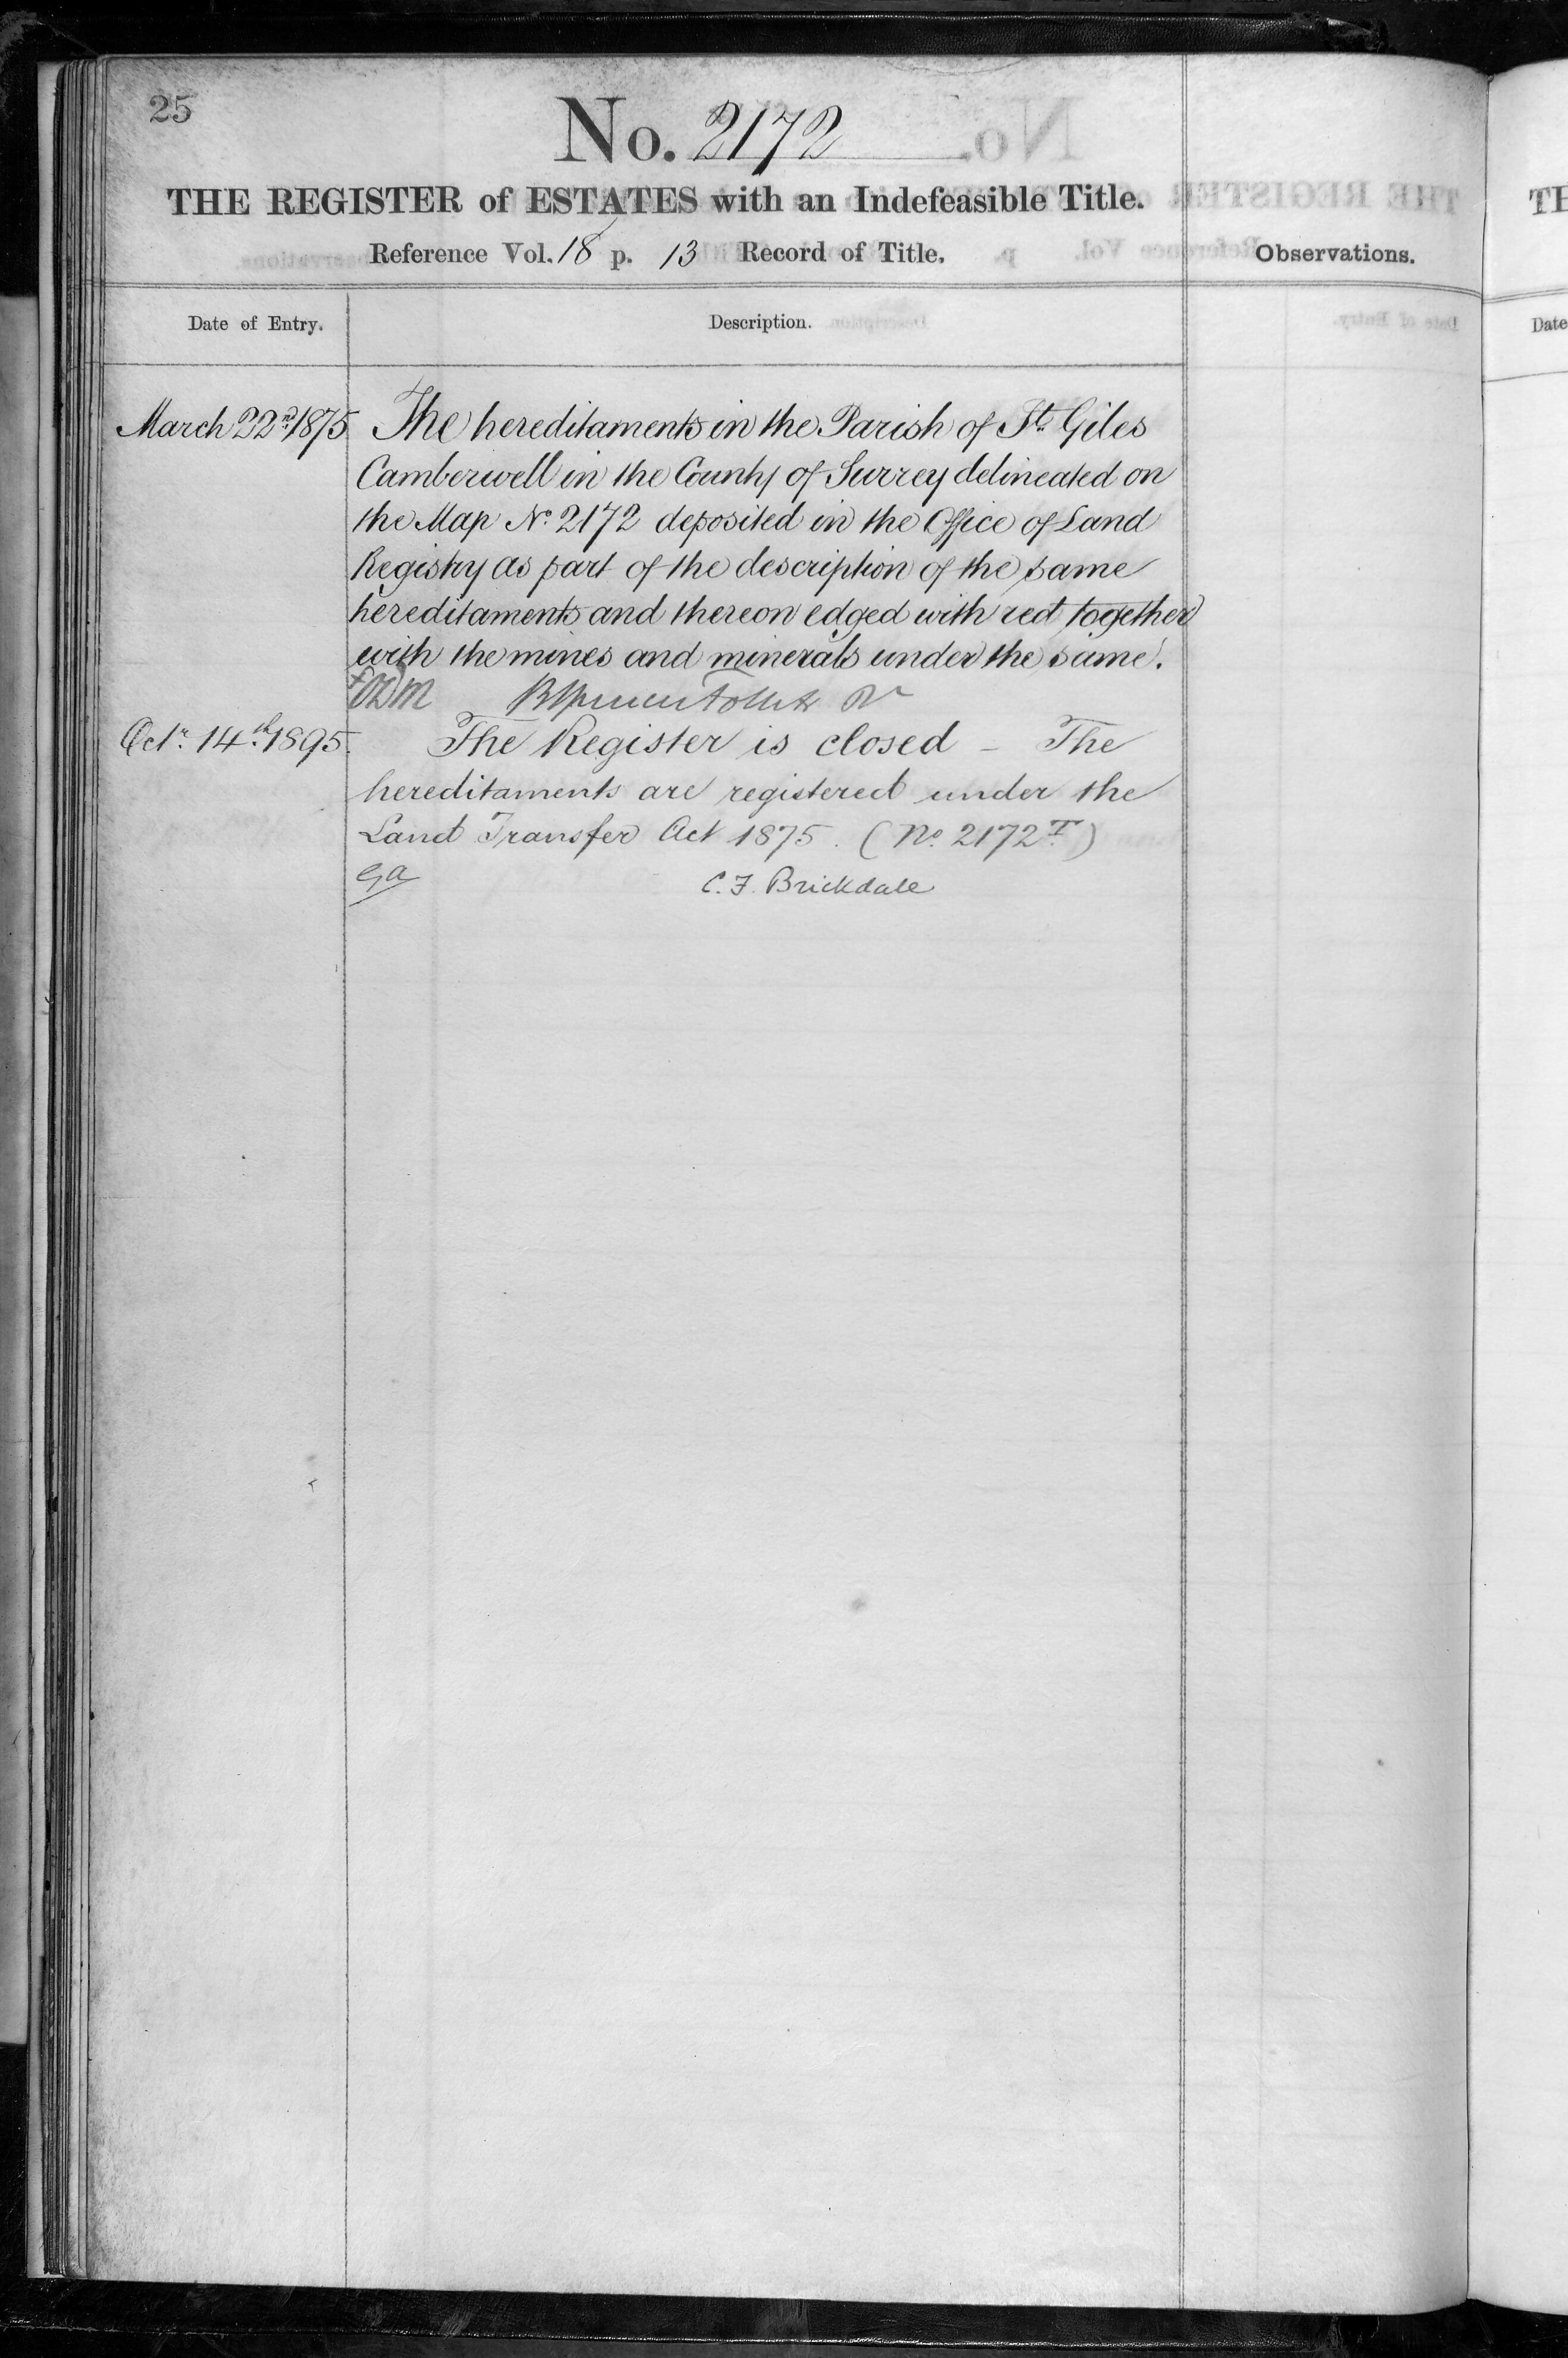 25
No. 2172
THE REGISTER of ESTATES with an Indefeasible Title.
Reference Vol. 18 p. 13 Record of Title.
Observations.
Date of Entry.
Description.
March 22nd 1875
The hereditaments in the Parish of St. Giles
Camberwell in the County of Surrey delineated on
the Map No. 2172 deposited in the Office of Land
Registry as part of the description of the same
hereditaments and thereon edged with red together
with the mines and minerals under the same.
Octr. 14th 1895.
The Register is closed – The
hereditaments are registered under the
Land Transfer Act 1875. (No. 2172 T)
C. F. Brickdale
TH
Date